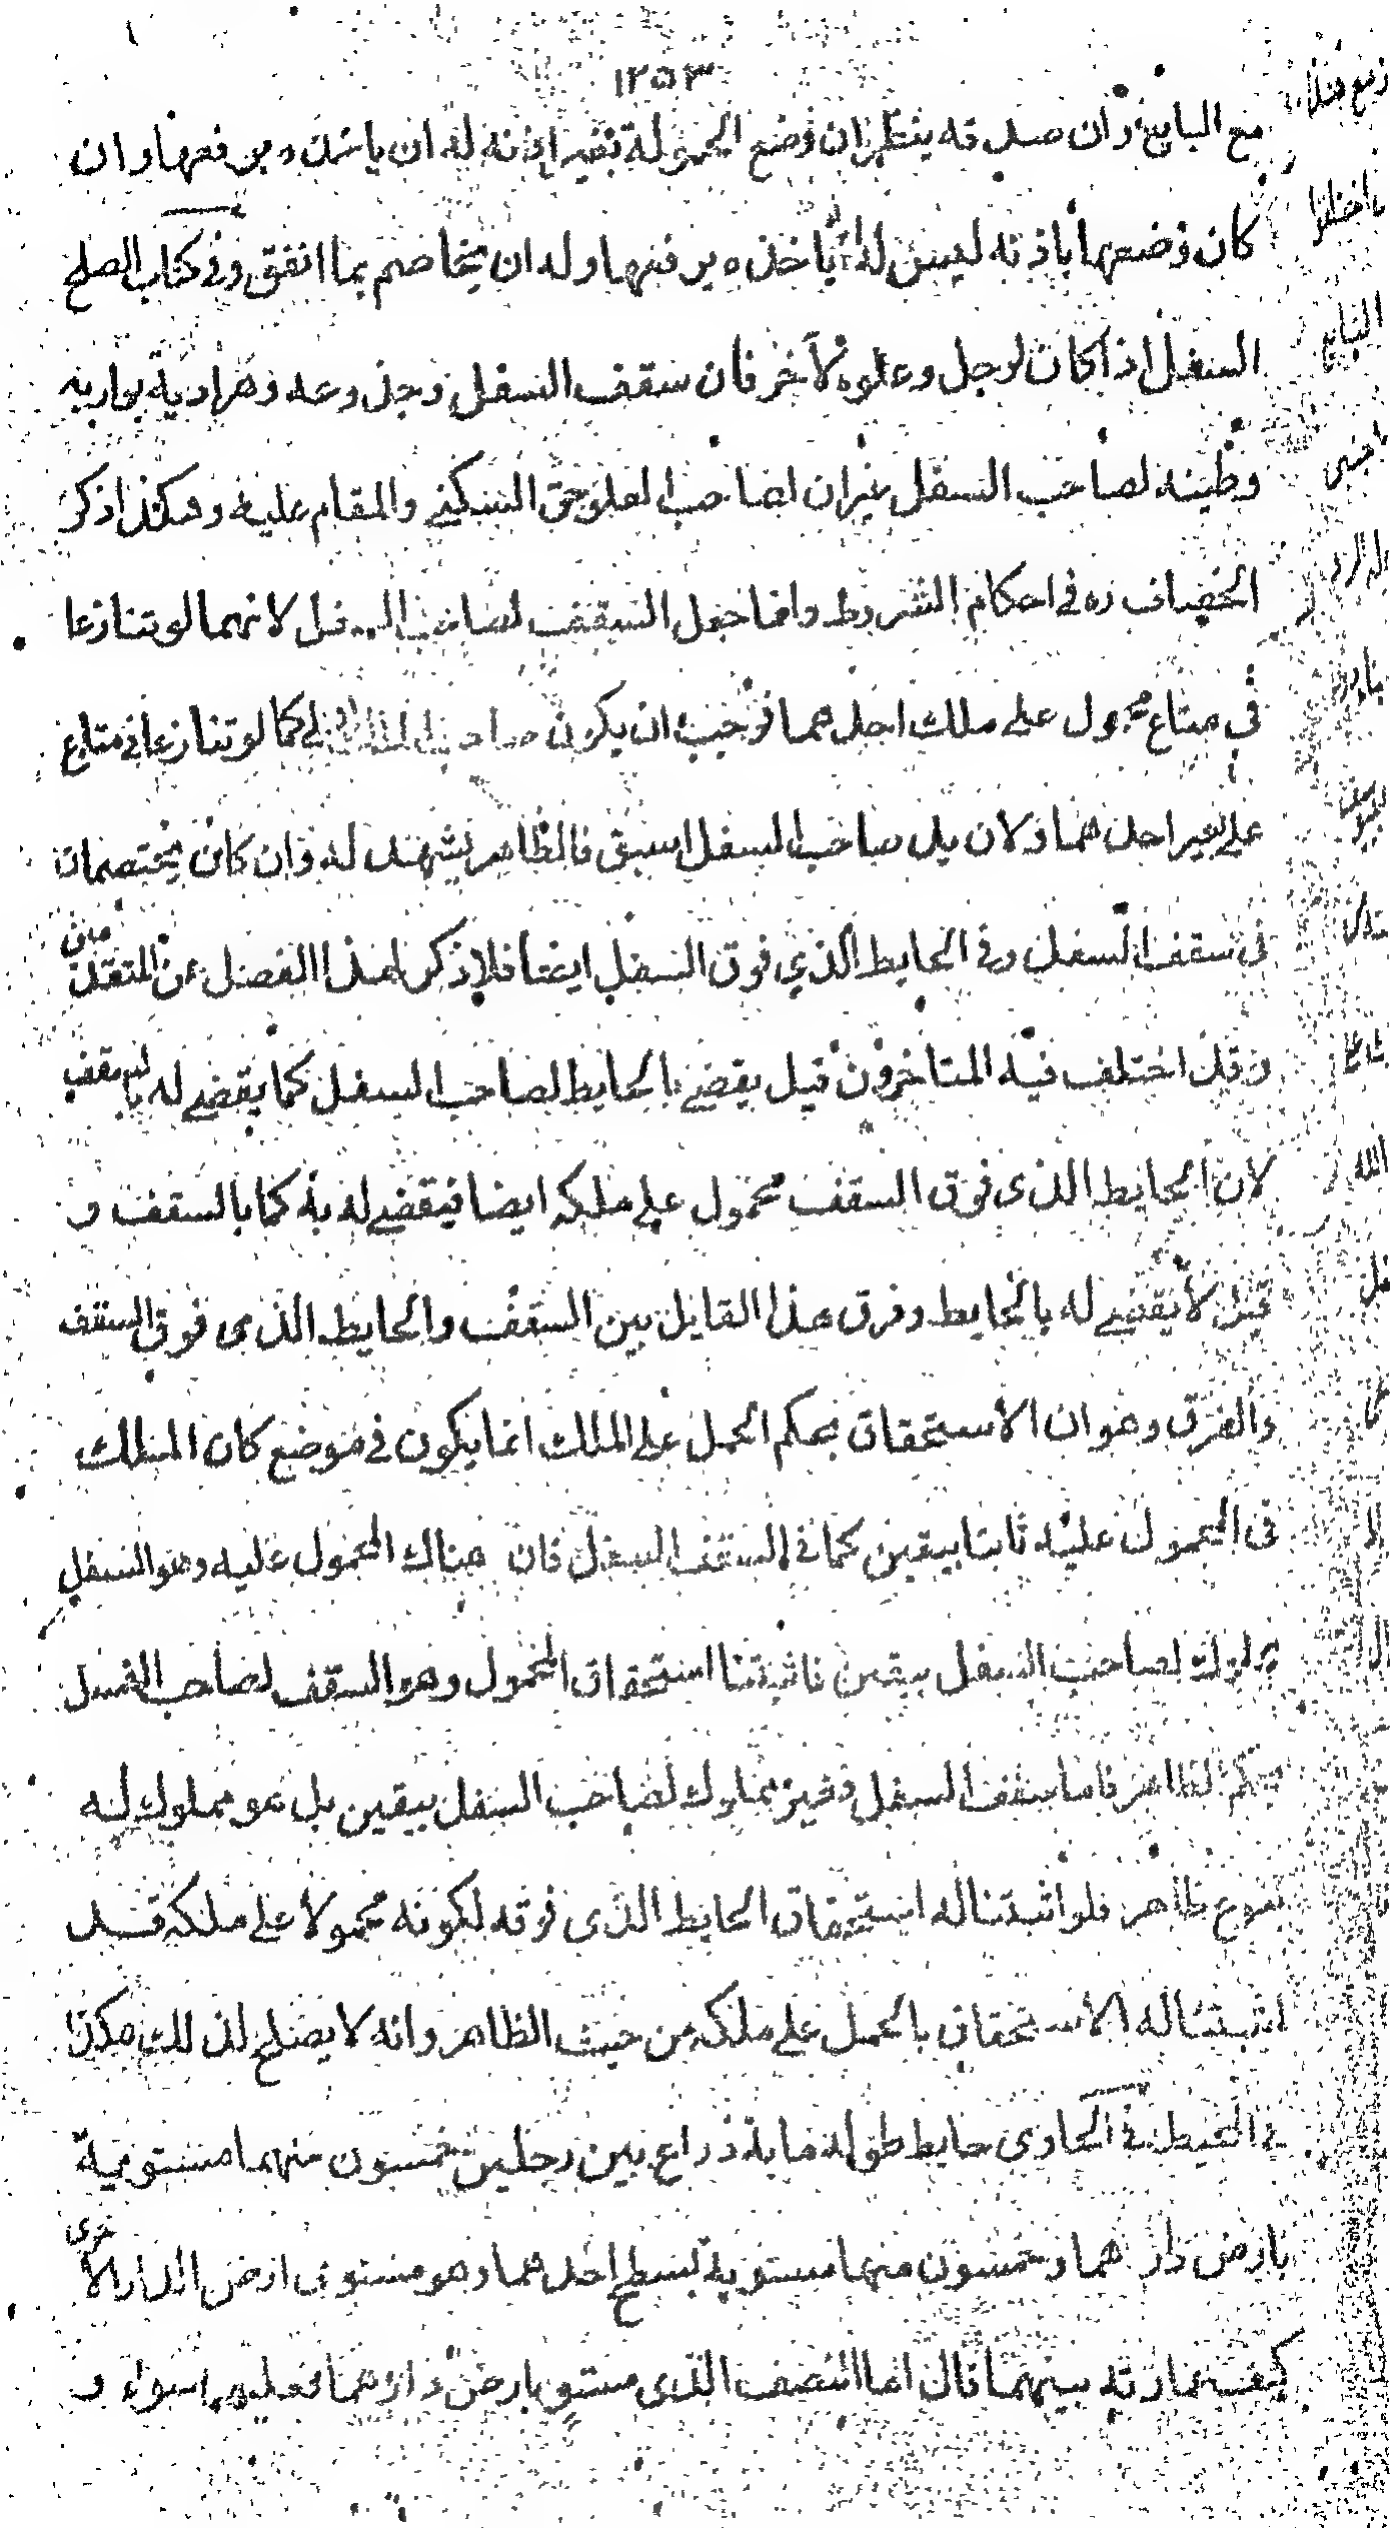 ١٢٥٣
مع البايع وان صدقه ينظر ان وضع الحمولة بغير اذنه له ان ياخذه برفعها وان
كان وضعها باذنه ليس له ان ياخذه برفعها وله ان يخاصم بما انفق وفى كتاب الصلح
السفل اذا كان لرجل وعلوه لاخر فان سقف السفل وجذوعه وهراديه بواريه
وطينه لصاحب السفل غير ان لصاحب العلو حق السكنى والمقام عليه وهكذا ذكر
الخصاف ره فى احكام الشروط وانما جعل السقف لصاحب السفل لانهما لو تنازعا
فى متاع محمول على ملك احدهما فوجب ان يكون صاحب كما لو تنازعا فى متاع
على بعير احدهما ولان يد صاحب السفل اسبق فالظاهر يشهد له وان كان يختصمان
فى سقف السفل وفى الحايط الذي فوق السفل ايضا فلا ذكر لهذا الفصل عن المتقدمين
وقد اختلف فيه المتاخرون قيل يقضى بالحايط لصاحب السفل كما يقضى له بالسقف
لان الحايط الذى فوق السقف محمول على ملكه ايضا فيقضى له به كما بالسقف و
قيل لا يقضى له بالحايط وفرق هذا القايل بين السقف والحايط الذى فوق السقف
والفرق وهو ان الاستحقاق بحكم الحمل على الملك انما يكون فى موضع كان الملك
فى المحمول عليه ثابتا بيقين كما فى السقف السفل فان هناك المحمول عليه وهو السفل
مملوك لصاحب السفل بيقين فاثبتنا استحقاق المحمول وهو السقف لصاحب السفل
بحكم الظاهر فاما سقف السفل فغير مملوك لصاحب السفل بيقين بل هو مملوك له
بنوع ظاهر فلو اثبتنا له استحقاق الحايط الذى فوقه لكونه محمولا على ملكه قد
اثبتنا له الاستحقاق بالحمل على ملكه من حيث الظاهر وانه لا يصلح لذلك هكذا
فى المحيط فى الحاوى حايط طوله ماية ذراع بين رجلين خمسون منهما مستوية
بارض دارهما وخمسون منها مستوية بسطح احدهما وهو مستوى ارض الدار الاخرى
كيف عمارته بينهما قال اما النصف الذى مستو بارض دارهما فعليهما سواء و